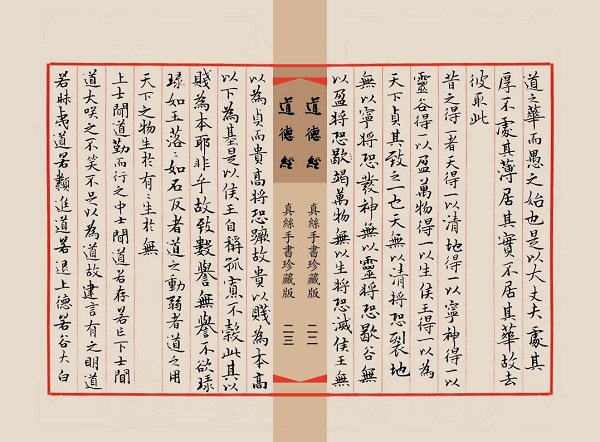 道之華而愚之始也是以大丈夫處其
厚不處其薄居其實不居其華故去
彼取此
昔之得一者天得一以清地得一以寧神得一以
靈谷得一以盈萬物得一以生侯王得一以為
天下貞其致之一也天無以清將恐裂地
無以寧將恐發神無以靈將恐歇谷無
以盈將恐竭萬物無以生將恐滅侯王無
道德經 真絲手書珍藏版 二二
道德經 真絲手書珍藏版 二三
以為貞而貴高將恐蹶故貴以賤為本高
以下為基是以侯王自稱孤寡不穀此其以
賤為本耶非乎故致數譽無譽不欲琭
琭如玉落〻如石反者道之動弱者道之用
天下之物生於有〻生於無
上士聞道勤而行之中士聞道若存若亡下士聞
道大咲之不笑不足以為道故建言有之明道
若昧夷道若纇進道若退上德若谷大白